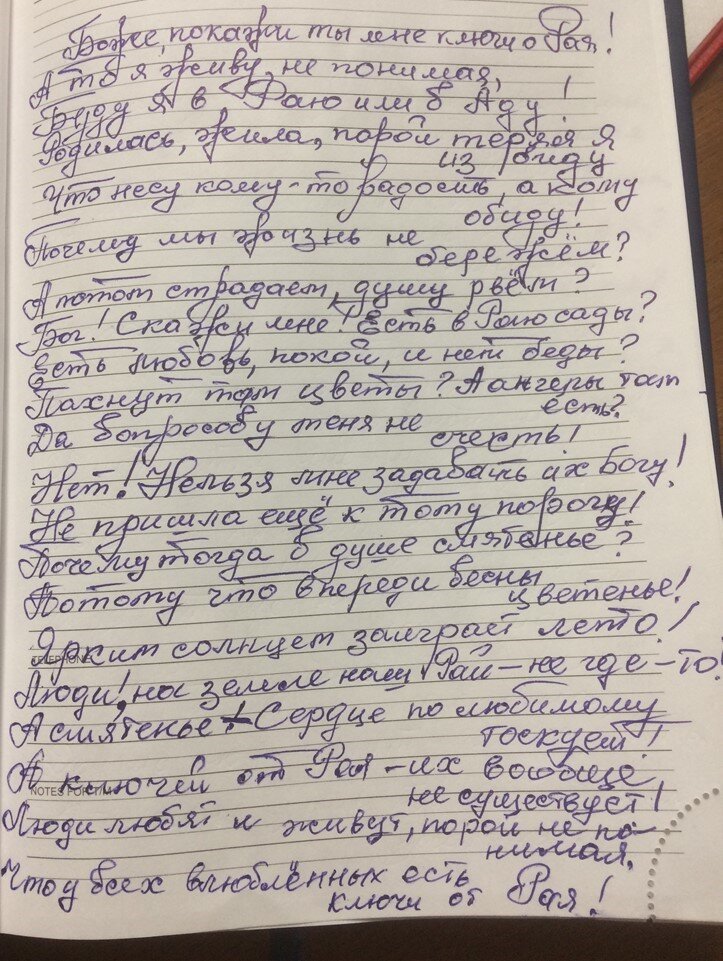 Боже, покажи ты мне ключи о Рая!
А то я живу, не понимая,
Буду я в Раю или в Аду!
Родилась, жила, порой теряя я
из виду
Что несу кому-то радость, а кому
обиду!
Почему мы жизнь не
бережём?
А потом страдаем, душу рвём?
Бог! Скажи мне! Есть в Раю сады?
Есть любовь, покой, и нет беды?
Пахнут там цветы? А ангелы там
есть?
Да вопросов у меня не
счесть!
Нет! Нельзя мне задавать их Богу!
Не пришла ещё к тому порогу!
Почему тогда в душе смятенье?
Потому что впереди весны
цветенье!
Ярким солнцем заиграет лето!
TELEPHONE
Люди!, на земле наш Рай - не где-то!
А смятенье! - Сердце по любимому
тоскует!
А ключей от Рая - их вообще
NOTES FOR
не существует!
Люди любят и живут, порой не по-
нимая,
Что у всех влюблённых есть
ключи от Рая!